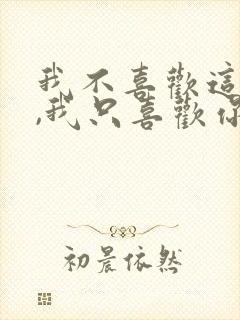 我不喜歡這
,我只喜歡你
初晨依然